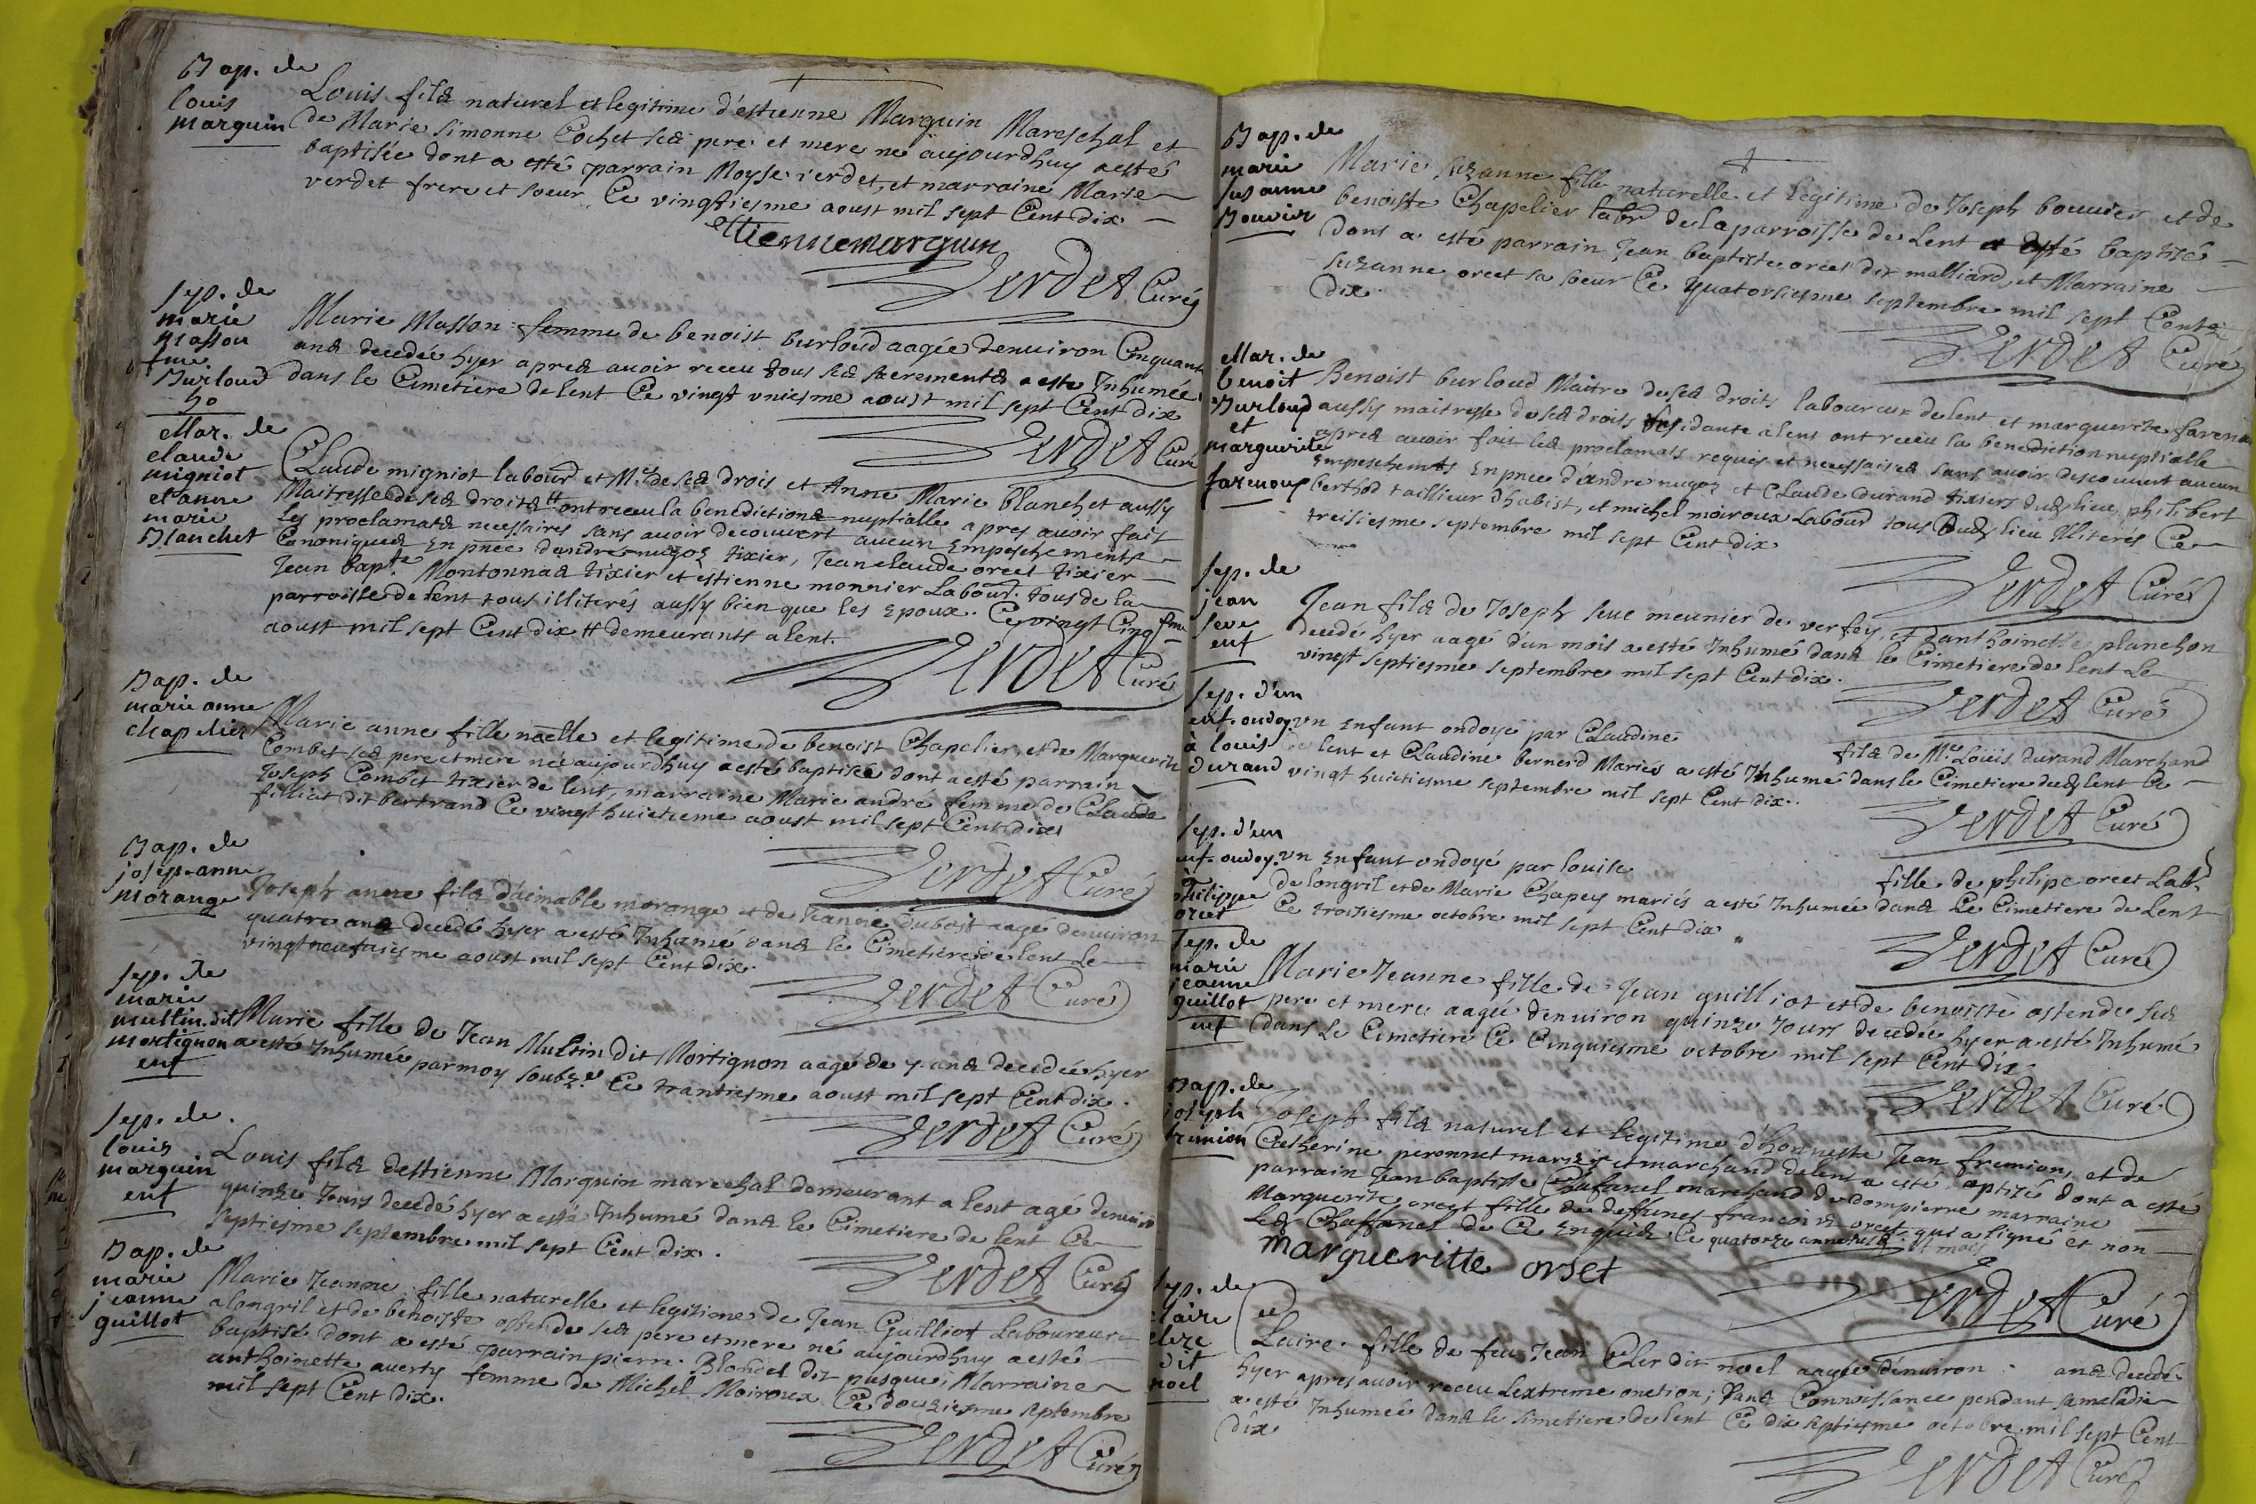 Bap. de
louis
marguin
Louis fils naturel et legitime d'estienne Marguin Mareschal et
de Marie simonne Cochet ses pere et mere ne aujourdhuy a esté
baptisée dont a esté parrain Moyse verdet, et marraine Marie
verdet frere et soeur. Ce vingtiesme aoust mil sept Cent dix
ettiennemarguin
Verdet Curé
sep. de
marie
masson
fme
Burloud
ho
Marie Masson femme de benoist burloud aagée denuiron Cinquante
ans decedée hyer apres auoir receu tous ses sacrements a esté Inhumée
dans le Cimetiere de lent Ce vingt vniesme aoust mil sept Cent dix
Verdet Curé
Mar. de
claude
migniot
et anne
marie
Blanchet
CLaude migniot labour et Mre de ses drois et Anne Marie blanchet aussy
Maitresse de ses droits # ont receu la benediction nuptialle apres auoir fait
les proclamats necessaires sans auoir decouuert aucun Empeschements
Canoniques En pnce dandre nugoz tixier, Jean claude orcet tixier
Jean bapte Montonnas tixier et estienne monnier Labour. tous de la
parroisse de lent tous illiterés aussy bien que les Epoux. Ce vingt Cinqsme
aoust mil sept Cent dix # demeurants a lent.
Verdet Curé
Bap. de
marie anne
chapelier
Marie anne fille naelle et legitime de benoist Chapelier et de Marguerite
Combet ses pere et mere née aujourdhuy a esté baptisée dont a esté parrain
Joseph Combet tixier de lent, marraine Marie andré femme de CLaude
filliat dit bertrand Ce vingt huictieme aoust mil sept Cent dix
Verdet Curé
Bap. de
josep-anne
morange
Joseph anne fils d'aimable morange et de Jeanne dubost aagé denuiron
quatre ans decedé hyer a esté Inhumé dans le Cimetiere de lent Le
vingt neufuiesme aoust mil sept Cent dix.
Verdet Curé
sep. de
marie
multin. dit
mortignon
enf
Marie fille de Jean Multin dit Mortignon aagé de 7 ans decedée hyer
a esté Inhumée par moy soubz.é Ce trantiesme aoust mil sept Cent dix.
Verdet Curé
sep. de
louis
marguin
enf
Louis fils destienne Marguin marechal demeurant a lent agé denuiron
quinze Jours decedé hyer a esté Inhumé dans le Cimetiere de lent Ce
septiesme septembre mil sept Cent dix.
Verdet Curé
Bap. de
marie
jeanne
guillot
Marie Jeanne fille naturelle et legitime de Jean Guilliot Laboureur
a longril et de benoiste ostende ses pere et mere né aujourdhuy a esté
baptisé dont a esté parrain pierre Blondel dit pasque; Marraine
anthoinette auerty femme de Michel Moiroux Ce douziesme septembre
mil sept Cent dix.
Verdet Curé
Bap. de
marie
susanne
Bouvier
Marie Suzanne fille naturelle et legitime de Joseph bouuier et de
benoiste Chapelier labr de la parroisse de Lent a esté baptisé
dont a esté parrain Jean baptiste orcet dit malliard, et Marraine
suzanne orcet sa soeur Ce quatorsiesme septembre mil sept Cents
dix.
Verdet Curé
Mar. de
benoit
Burloud
et
marguerite
farenoux
Benoist burloud Maitre de ses droits laboureur de lent et marguerite farenoux
aussy maitresse de ses droits residante a lent ont receu la benediction nuptialle
apres auoir fait les proclamats requis et necessaires sans auoir descouuert aucun
Empeschemts En pnce d'andre nugoz et CLaude durand tixiers dudt lieu, philibert
berthod taillieur dhabist, et michel moiroux Labour tous dudt lieu Illiterés Ce
treisiesme septembre mil sept Cent dix
Verdet Curé
sep. de
jean
seve
enf
Jean fils de Joseph seue meunier de verfey et danthoinette planchon
decedé hyer aagé d'un mois a esté Inhumé dans le Cimetiere de lent Le
vingt septiesme septembre mil sept Cent dix.
Verdet Curé
sep. d'un
enf. ondoy.
à louis
durand
un Enfant ondoyé par CLaudine fils de Mre Louis durand Marchand
de lent et Claudine bernerd Mariés a esté Inhumé dans le Cimetiere dudt lent Ce
vingt huictiesme septembre mil sept Cent dix.
Verdet Curé
sep. d'un
enf. ondoy.
à
philippe
orcet
un Enfant ondoyé par louise fille de philipe orcet Labr
de longril et de Marie Chapey mariés a esté Inhumée dans Le Cimetiere de Lent
Ce troisiesme octobre mil sept Cent dix
Verdet Curé
sep. de
marie
jeanne
guillot
enf
Marie Jeanne fille de Jean guilliot et de benoiste ostende ses
pere et mere aagée denuiron quinze Jours decedée hyer a esté Inhumé
dans Le Cimetiere Ce Cinquiesme octobre mil sept Cent dix
Verdet Curé
Bap. de
joseph
frumion
Joseph fils naturel et legitime d'honneste Jean frumion, et de
Catherine peronnet mariés et marchand de lent a esté baptisé dont a esté
parrain Jean baptiste Chafanel marchand de dompierre marraine
Marguerite orcet fille de deffunct francois orcet qui a signé et non
Led. Chaffanel de Ce Enquis Ce quatorze
margueritte orset
Verdet Curé
sep. de
claire
clerc
dit
noel
Claire fille de feu Jean Cler dit noel aagée denuiron ans decedé
hyer apres auoir receu Lextreme onction; sans Connoissance pendant sa maladie
a esté Inhumée dans le simetiere de lent Ce dix septiesme octobre mil sept Cent
dix
Verdet Curé